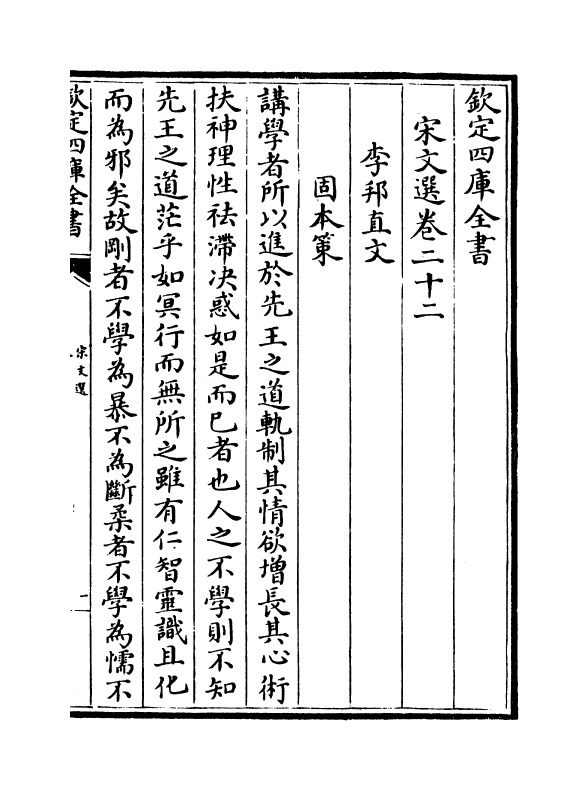 欽定四庫全書
宋文選卷二十二
李邦直文
固本策
講學者所以進於先王之道軌制其情欲增長其心術
扶神理性袪滯决惑如是而已者也人之不學則不知
先王之道茫乎如冥行而無所之雖有仁智靈識且化
而為邪矣故剛者不學為暴不為斷柔者不學為懦不
欽定四庫全書
宋文選